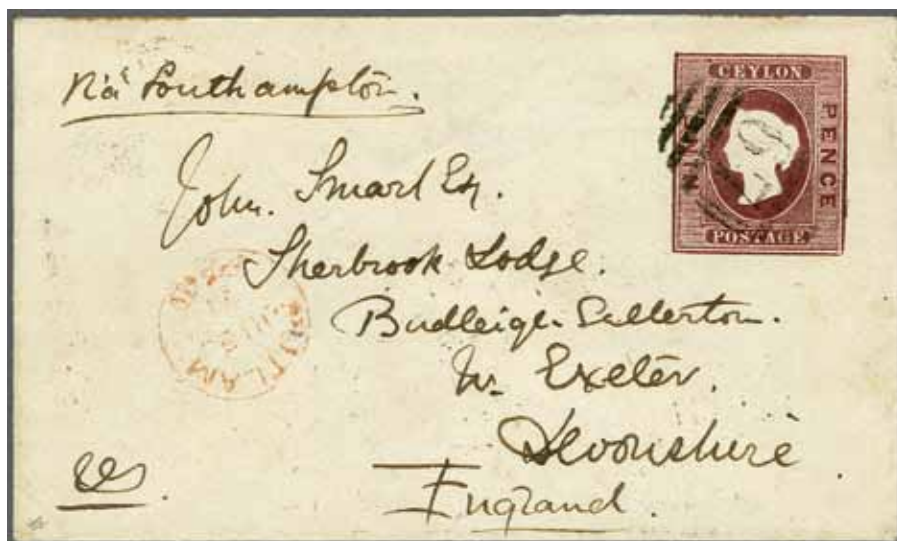 Via Southampton.
CEYLON
NINE PENCE
POSTAGE
John. Smart Esq.
Sherbrook Lodge.
Budleigh. Sallerton.
Nr. Exeter.
Devonshire
England.